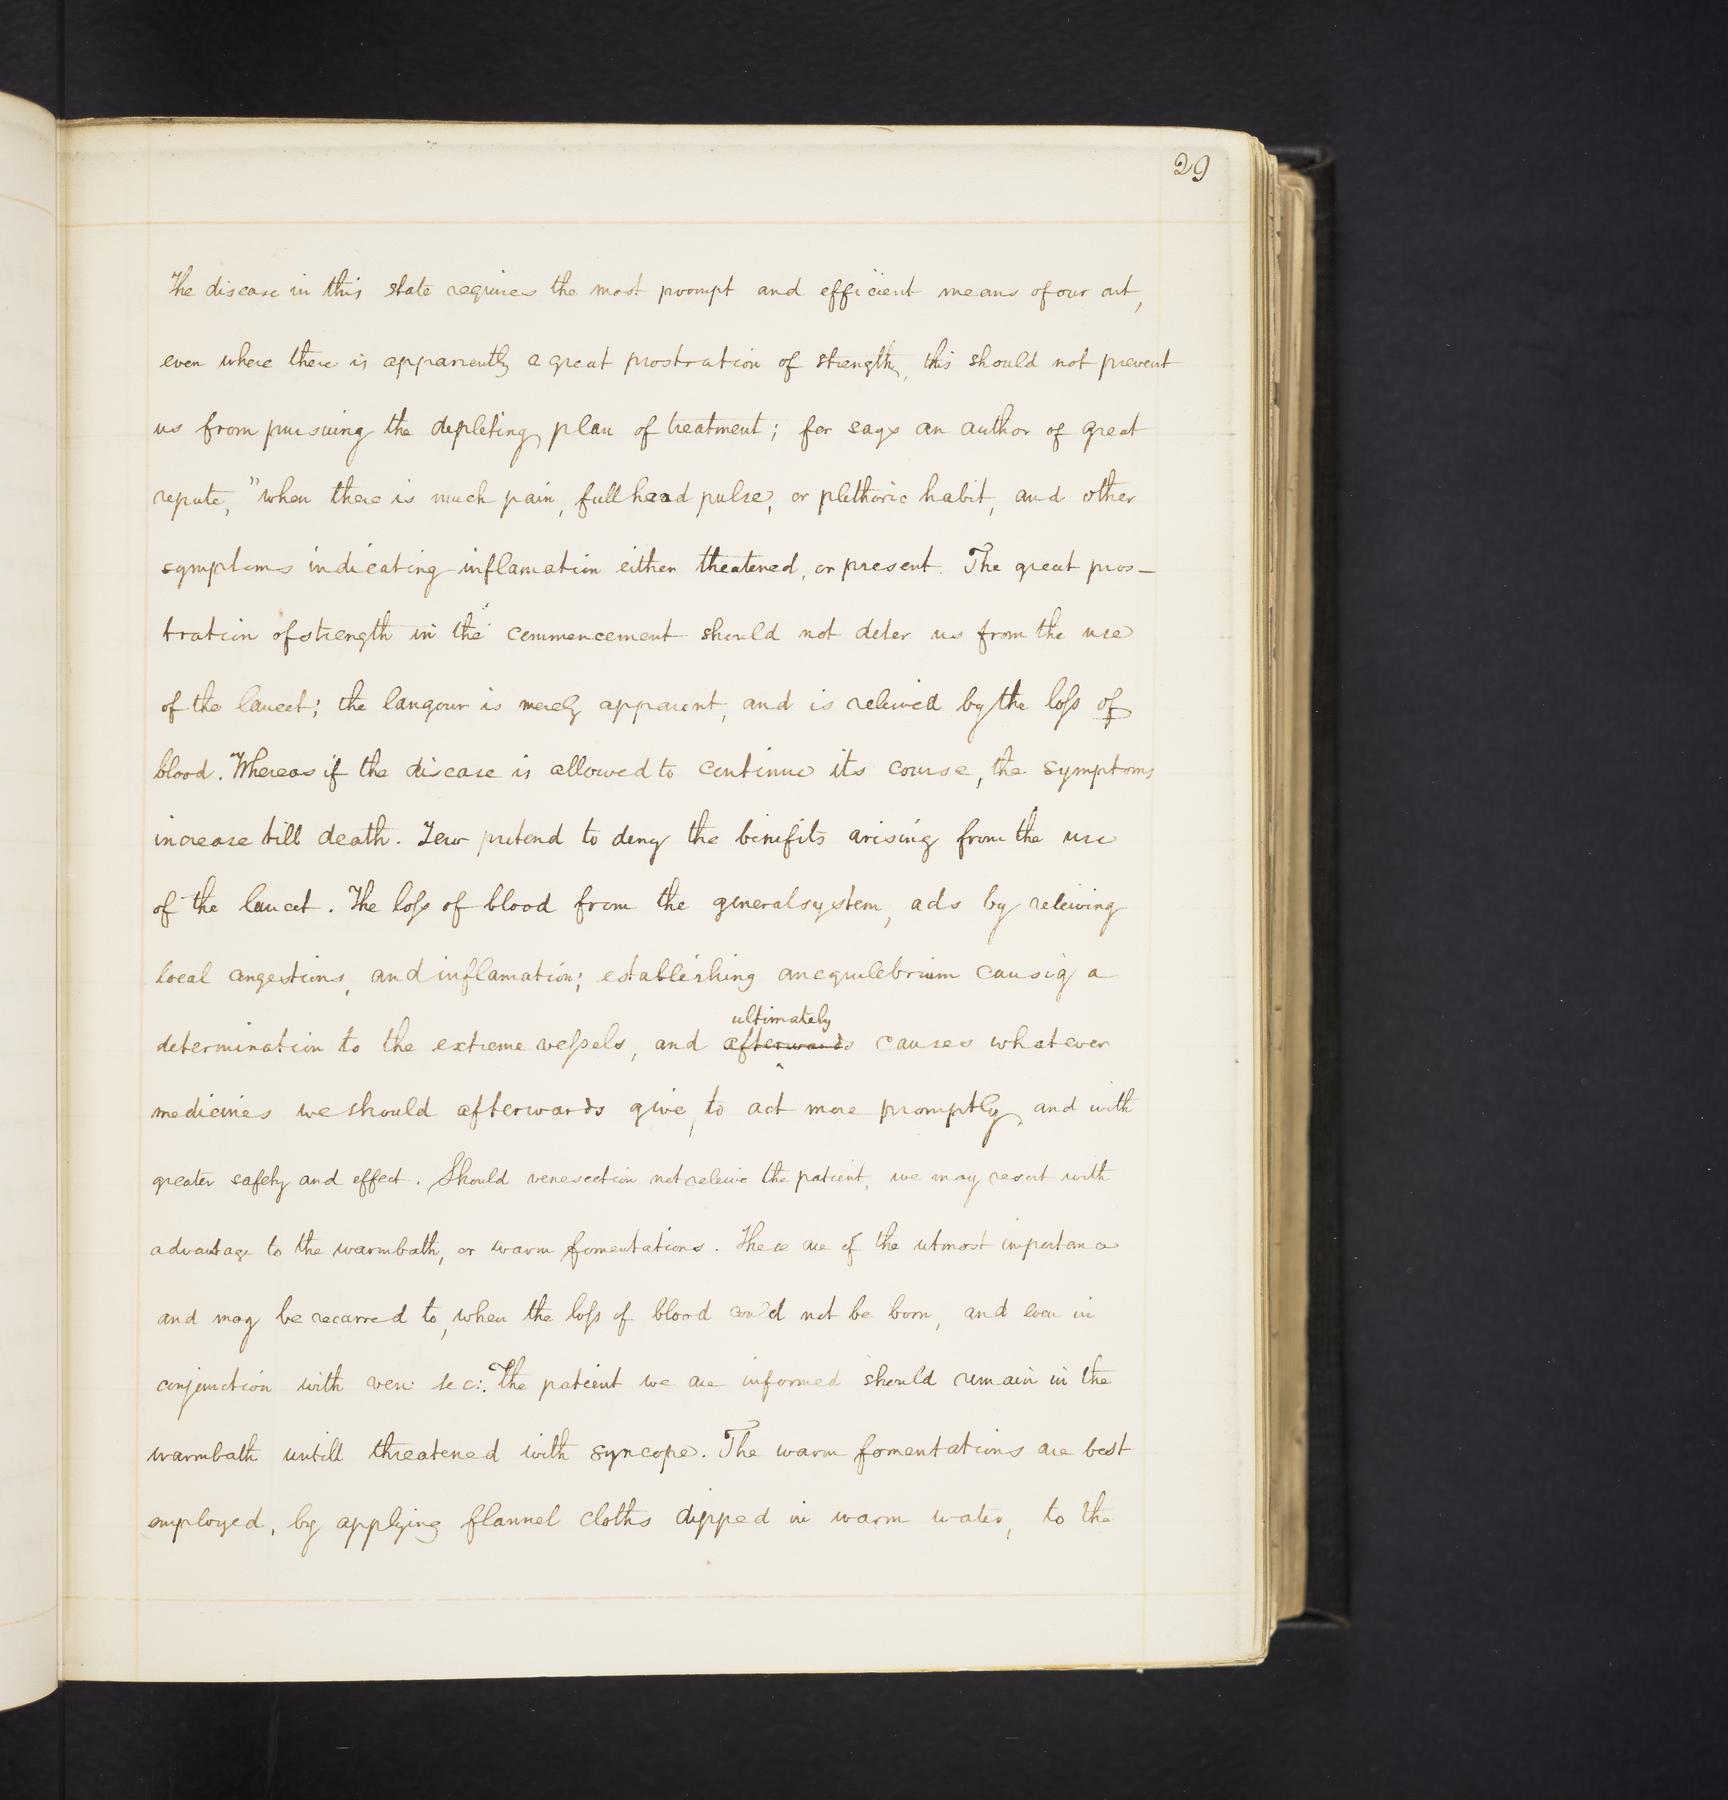 29
The disease in this state requires the most prompt and efficient means of our art,
even where there is apparently a great prostration of strength, this should not prevent
us from pursuing the depleting plan of treatment; for says an author of great
repute, "when there is much pain, full head pulse, or plethoric habit, and other
symptoms indicating inflamation either theatened, or present. The great pros-
tration of strength in the commencement should not deter us from the use
of the lancet; the langour is merely apparent, and is releived by the loss of
blood. Whereas if the disease is allowed to continue its course, the symptoms
increase till death. Few pretend to deny the binifits arising from the use
of the lancet. The loss of blood from the general system, acts by releiving
local congestions, and inflamation; establishing an equilebrium causig a
determination to the extreme vessels, and afterwards ultimately causes whatever
medicines we should afterwards give, to act more promptly and with
greater safety and effect. Should venesection not releive the patient, we may resort with
advantage to the warmbath, or warm fomentations. These are of the utmost importance
and may be recurred to, when the loss of blood could not be born, and even in
conjunction with ven: sec:. The patient we are informed should remain in the
warmbath untill threatened with syncope. The warm fomentations are best
employed, by applying flannel cloths dipped in warm water, to the